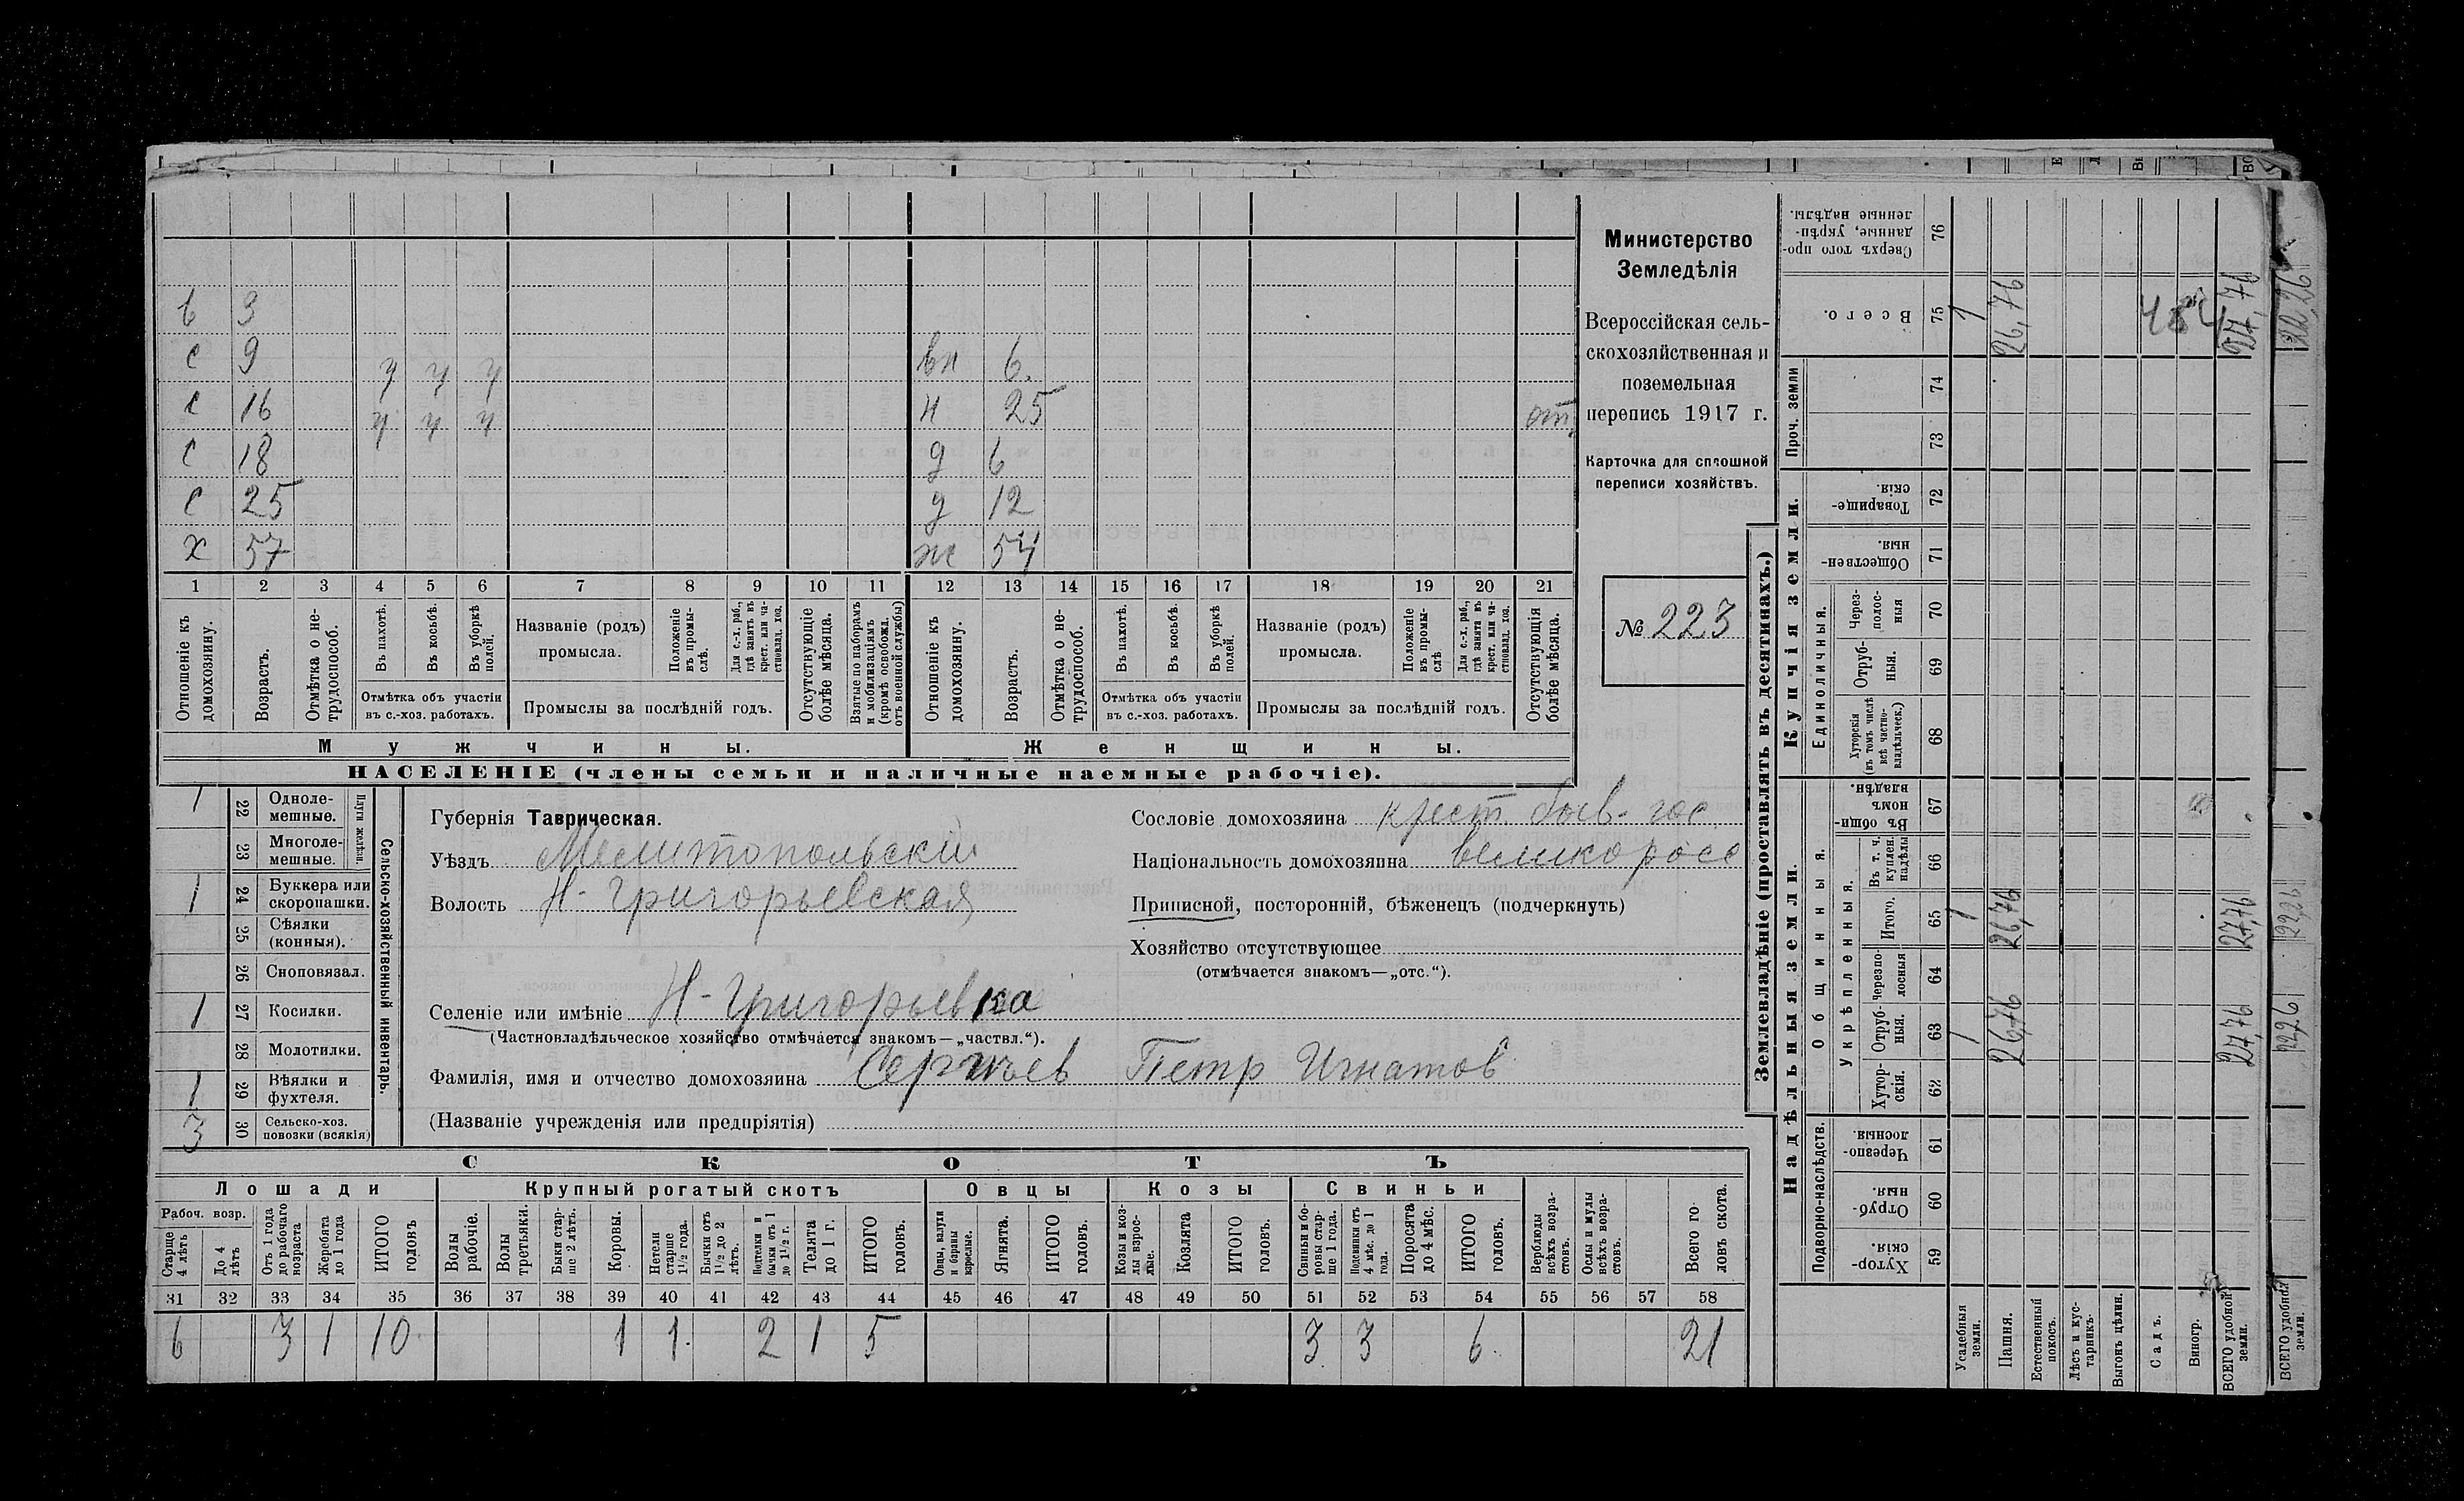 в 3
с 9 вн 6.
с 16 ч ч ч н 25 от.
с 18 ч ч ч д 6
с 25 д 12
х 57 ж 54
1 2 3 4 5 6 7 8 9 10 11 12 13 14 15 16 17 18 19 20 21
Отношеніе къ домохозяину.
Возрастъ.
Отмѣтка о нетрудоспособ.
Въ пахотѣ.
Въ косьбѣ.
Въ уборкѣ полей.
Отмѣтка объ участіи
въ с.-хоз. работахъ.
Названіе (родъ)
промысла.
Положеніе въ промыслѣ.
Для с.-х. раб., гдѣ занятъ въ крест. или частновлад. хоз.
Промыслы за послѣдній годъ.
Отсутствующіе болѣе мѣсяца.
Взятые по наборамъ и мобилизаціямъ (кромѣ освобожд. отъ военной службы)
Отношеніе къ домохозяину.
Возрастъ.
Отмѣтка о нетрудоспособ.
Въ пахотѣ.
Въ косьбѣ.
Въ уборкѣ полей.
Отмѣтка объ участіи
въ с.-хоз. работахъ.
Названіе (родъ)
промысла.
Положеніе въ промыслѣ
Для с.-х. раб., гдѣ занята въ крест. или частновлад. хоз.
Промыслы за послѣдній годъ.
Отсутствующія болѣе мѣсяца.
Мужчины. Женщины.
НАСЕЛЕНІЕ (члены семьи и наличные наемные рабочіе).
Министерство
Земледѣлія
Всероссійская сель-
скохозяйственная и
поземельная
перепись 1917 г.
Карточка для сплошной
переписи хозяйствъ.
№ 223
1 22 Однолемешные.
23 Многолемешные.
Плуги желѣзн.
1 24 Буккера или скоропашки.
25 Сѣялки (конныя).
26 Сноповязал.
1 27 Косилки.
28 Молотилки.
1 29 Вѣялки и фухтеля.
3 30 Сельско-хоз. повозки (всякія)
Сельско-хозяйственный инвентарь.
Губернія Таврическая.
Уѣздъ Мелитопольскій
Волость Н-Григорьевская
Сословіе домохозяина крест. быв. гос.
Національность домохозяина великоросс
Приписной, посторонній, бѣженецъ (подчеркнуть)
Хозяйство отсутствующее
(отмѣчается знакомъ—„отс.“).
Селеніе или имѣніе Н-Григорьевка
(Частновладѣльческое хозяйство отмѣчается знакомъ—„частвл.“).
Фамилія, имя и отчество домохозяина Сергѣев Петр Игнатов
(Названіе учрежденія или предпріятія)
СКОТЪ
Лошади Крупный рогатый скотъ Овцы Козы Свиньи
Рабоч. возр.
Старше 4 лѣтъ
До 4 лѣтъ
Отъ 1 года до рабочаго возраста
Жеребята до 1 года
ИТОГО головъ
Волы рабочіе.
Волы третьяки.
Быки старше 2 лѣтъ.
Коровы.
Нетели старше 1½ года.
Бычки отъ 1½ до 2 лѣтъ.
Нетелки и бычки отъ 1 до 1½ г.
Телята до 1 г.
ИТОГО головъ.
Овцы, валухи и бараны взрослые.
Ягнята.
ИТОГО головъ.
Козы и козлы взрослые.
Козлята
ИТОГО головъ.
Свиньи и боровы старше 1 года.
Подсвинки отъ 4 мѣс. до 1 года.
Поросята до 4 мѣс.
ИТОГО головъ.
Верблюды всѣхъ возрастовъ.
Ослы и мулы всѣхъ возрастовъ.
Всего головъ скота.
31 32 33 34 35 36 37 38 39 40 41 42 43 44 45 46 47 48 49 50 51 52 53 54 55 56 57 58
6 3 1 10 1 1 2 1 5 3 3 6 21
Землевладѣніе (проставлять въ десятинахъ.)
Надѣльныя земли. Купчія земли. Проч. земли
Подворно-наслѣдств.
Общинныя.
Укрѣпленныя.
Единоличныя.
Хуторскія. 59
Отрубныя. 60
Черезполосныя. 61
Хуторскія. 62
Отрубныя. 63 1 26,76 27,76
Черезполосныя 64
Итого. 65 1 26,76 27,76
Въ т. ч. куплен. надѣлы 66
Въ общинномъ владѣн. 67
Хуторскія (въ томъ числѣ всѣ частновладѣльческ.) 68
Отрубныя. 69
Черезполосныя 70
Общественныя. 71
Товарищескія. 72
73
74
Всего. 75 1 26,76 27,76
Сверхъ того проданные, укрѣпленные надѣлы. 76
Усадебныя земли.
Пашня.
Естественный покосъ.
Лѣсъ и кустарникъ
Выгонъ цѣлин.
Садъ.
Виногр.
ВСЕГО удобной земли.
ВСЕГО удобной земли.
22,26
22,26
22,26